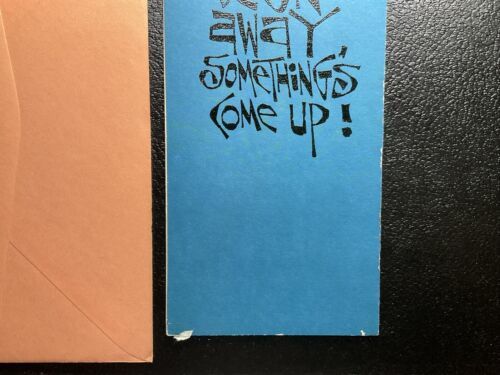 away,
something's
come up!